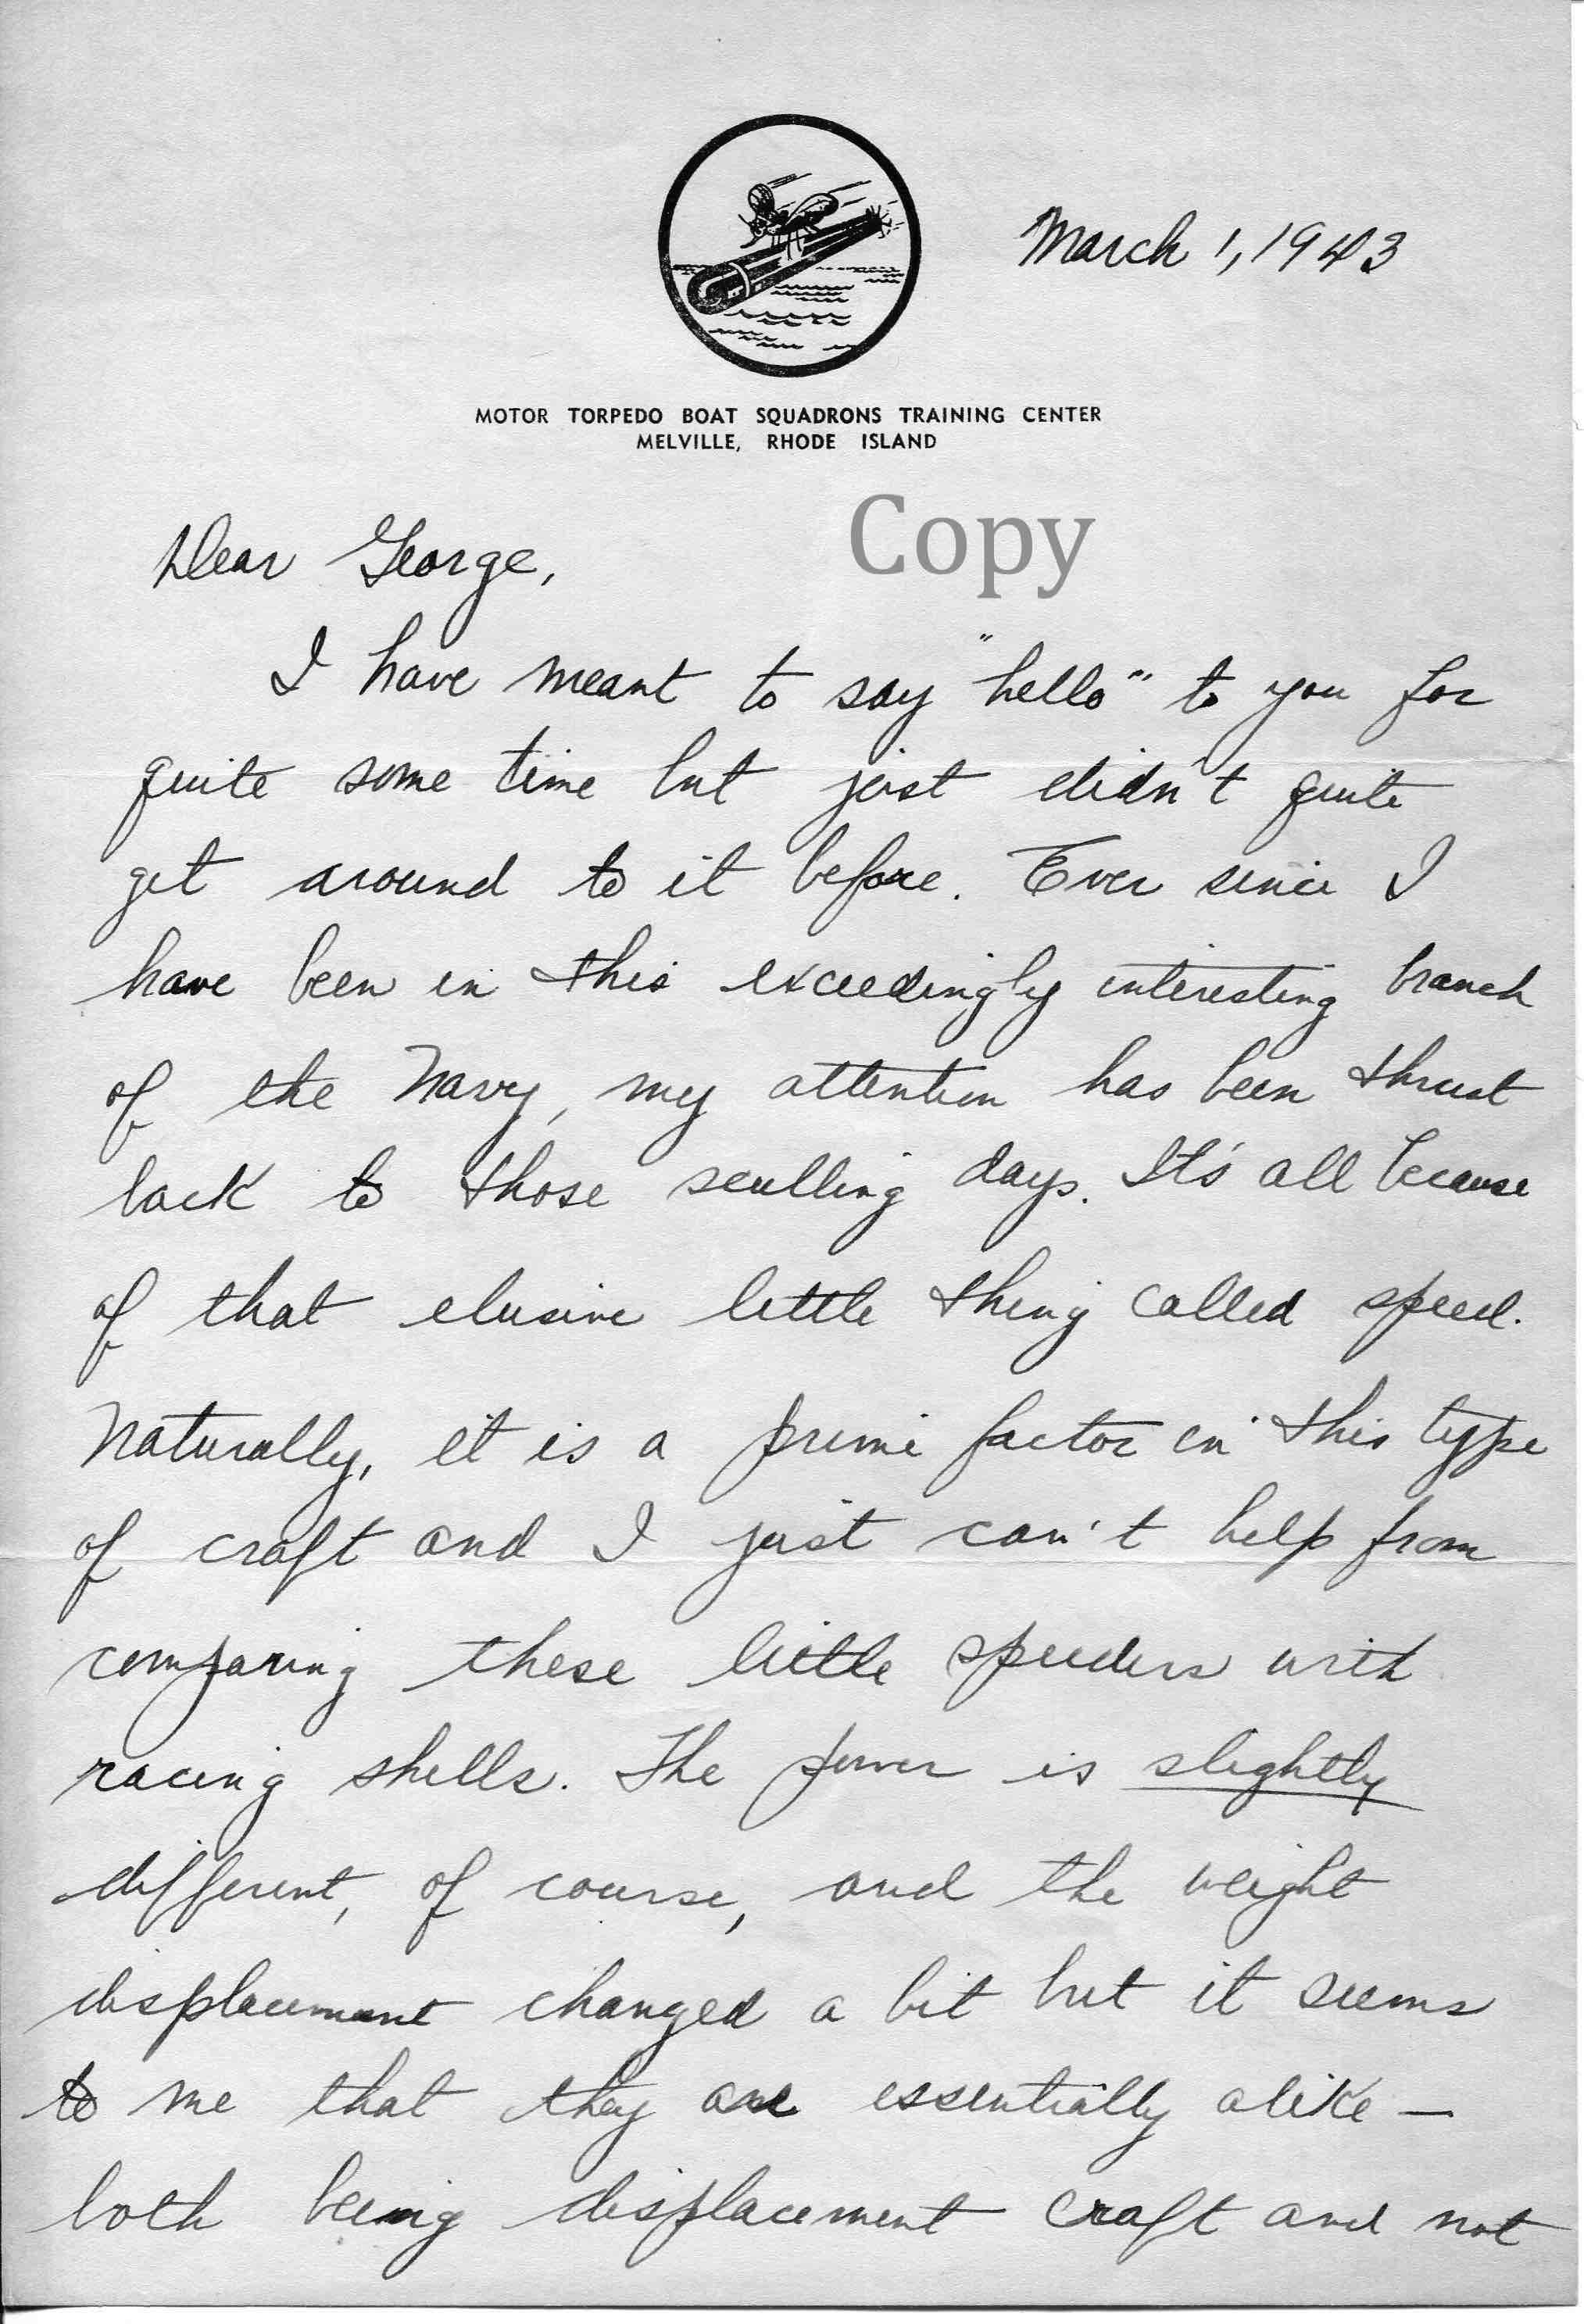 March 1, 1943
MOTOR TORPEDO BOAT SQUADRONS TRAINING CENTER
MELVILLE, RHODE ISLAND
Copy
Dear George,
I have meant to say "hello" to you for
quite some time but just didn't quite
get around to it before. Ever since I
have been in this exceedingly interesting branch
of the Navy, my attention has been thrust
back to those sculling days. It's all because
of that elusive little thing called speed.
Naturally, it is a prime factor in this type
of craft and I just can't help from
comparing these little speeders with
racing shells. The power is slightly
different, of course, and the weight
displacement changed a bit but it seems
to me that they are essentially alike —
both being displacement craft and not